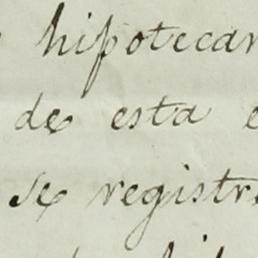 hipotecar
de esta e
se registr